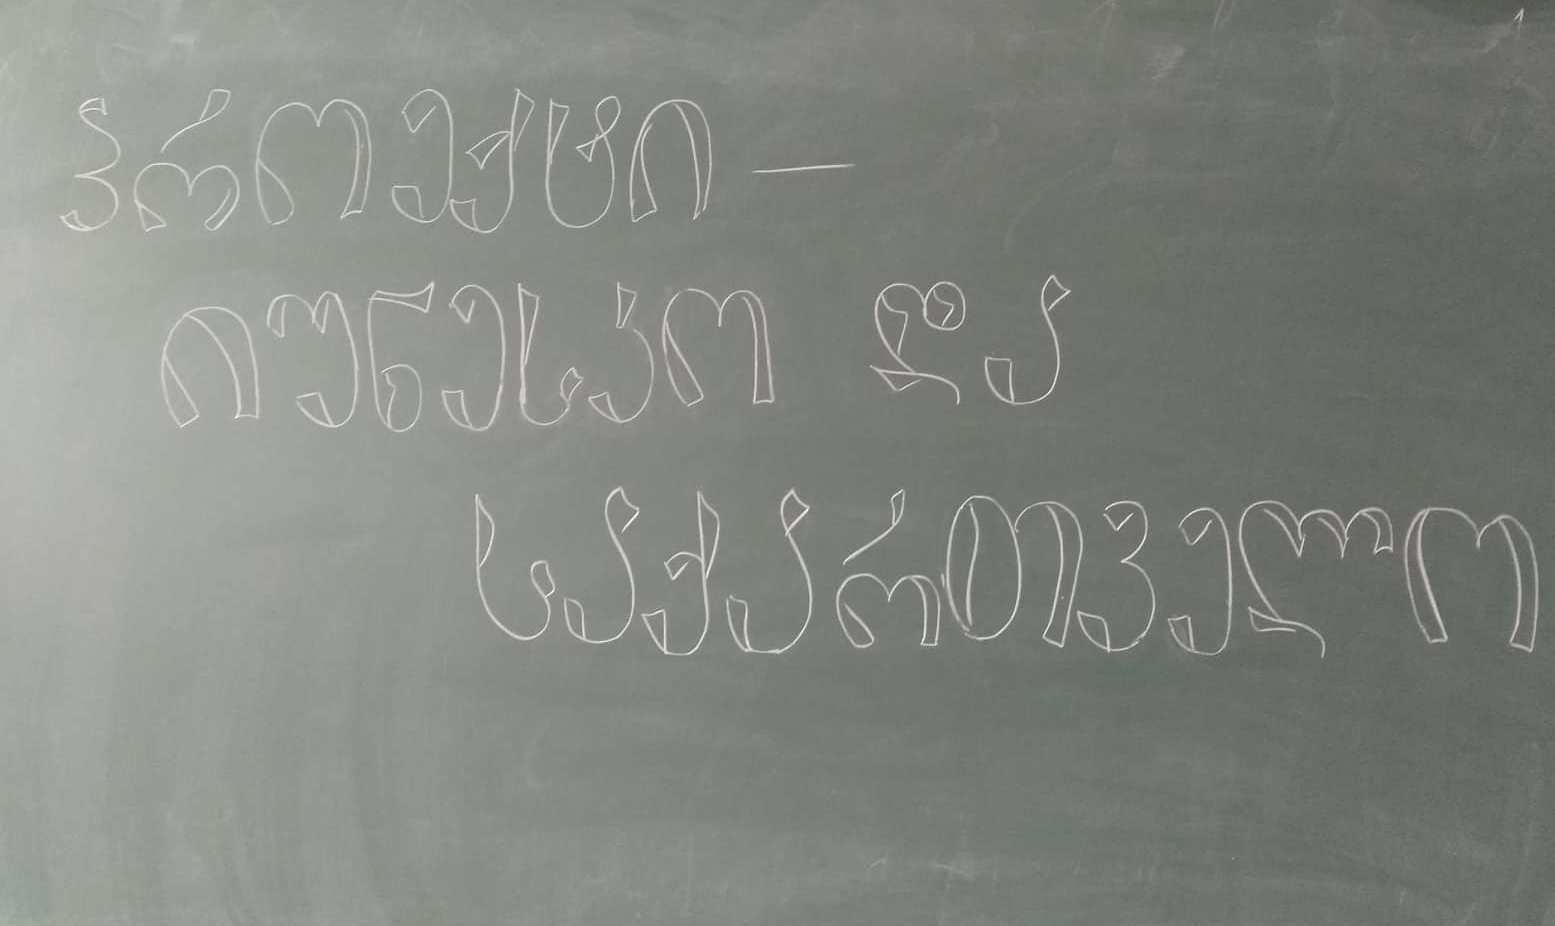 პროექტი —
იუნესკო და
საქართველო